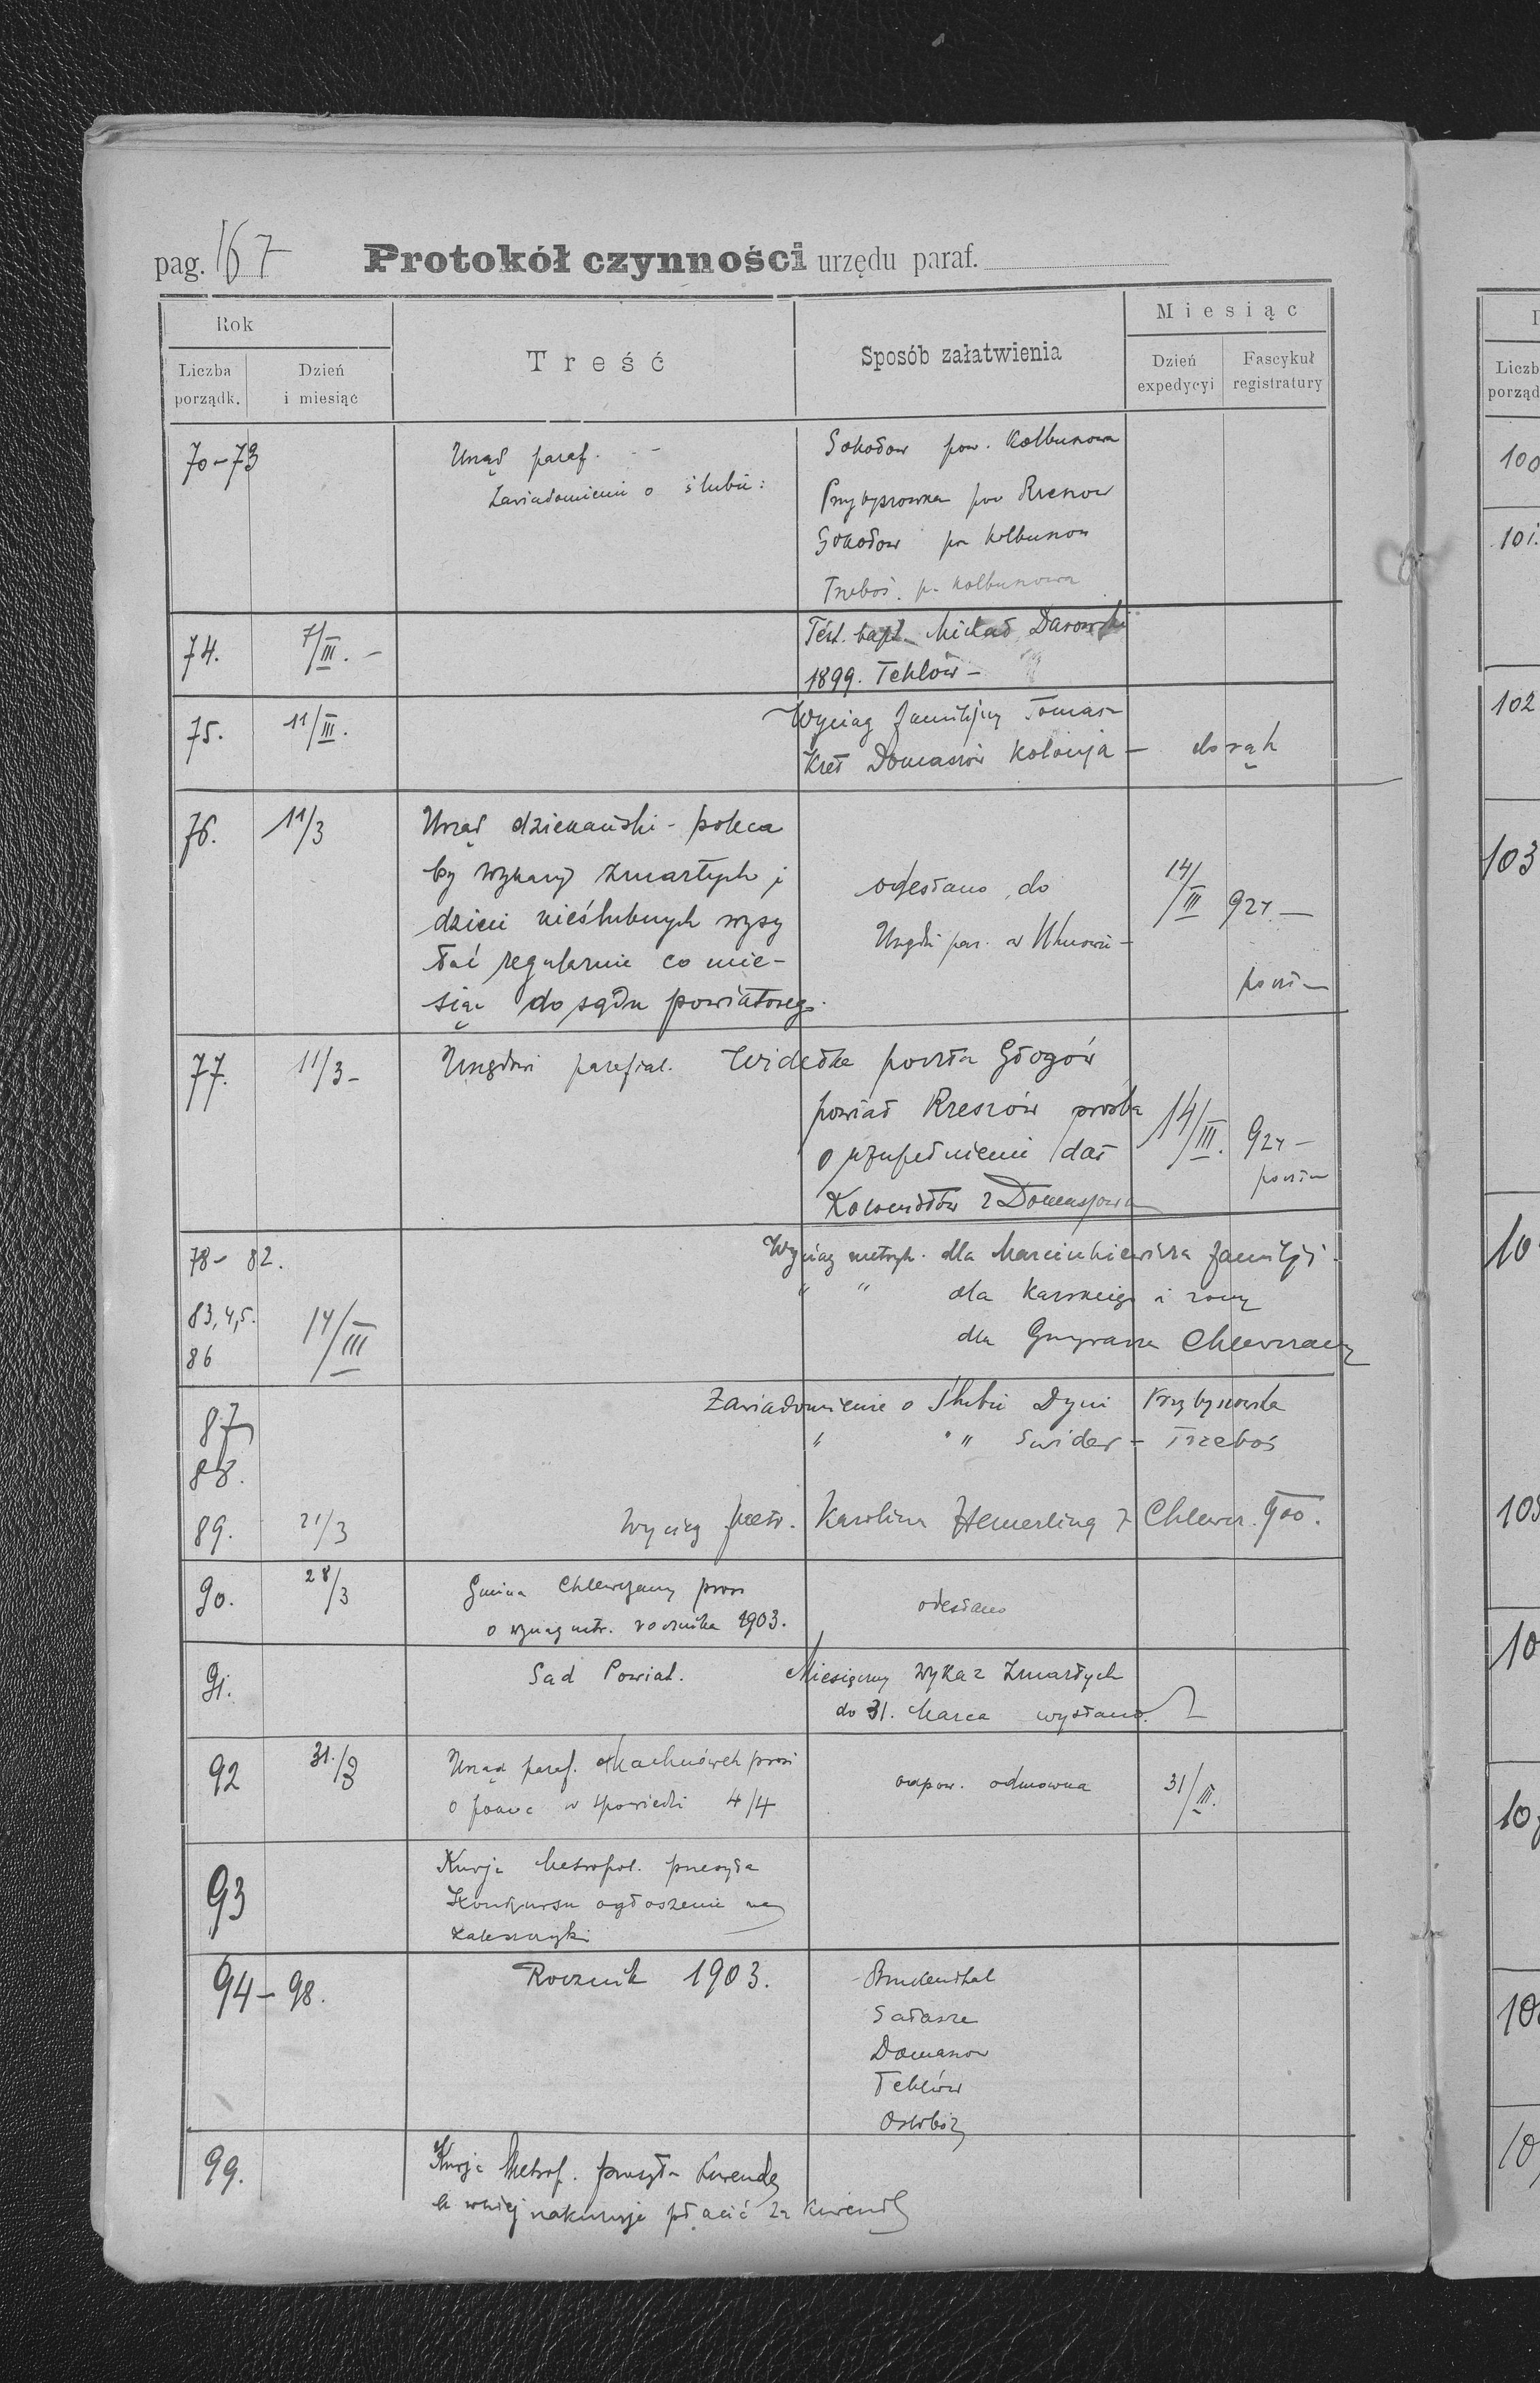 pag. 167 Protokół czynności urzędu paraf.
Rok
Miesiąc
Liczba porządk.
Dzień i miesiąc
Treść
Sposób załatwienia
Dzień expedycyi
Fascykuł registratury
70-73
Urząd paraf. - -
Zawiadomienie o ślubie:
Sokołow pow. Kolbuszowa
Przybyszowka pow Rzeszow
Sokołow pow Kolbuszow
Trzeboś. p. Kolbuszowa
74. 7/III. -
Test. bapt. Michał Darowski
1899. Tehlów -
75. 11/III.
Wyciąg familijny Tomasz
Kret Domaszów Kolonja - do rąk
76. 11/3
Urząd dziekański - poleca
by wykazy zmarłych i
dzieci nieślubnych wysy
łać regularnie co mie-
siąc do sądu powiatowego.
odesłano do
Urzędu par. w Uhnowie -
14/III 924 -
poczta
77. 11/3 -
Urzędowi parafial. Widełka poczta Głogów
powiat Rzeszów prośba
o uzupełnienie dat
z Domaszowa
14/III. 924 -
poczta
78 - 82.
Wyciąg metryk. dla Marcinkiewicza familji.
83, 4, 5.
" " dla i żony
86 14/III
dla Chlewczany
87
Zawiadomienie o ślubie Dyni Przybyszowka
88.
" " " Swider - Trzeboś
89. 21/3
Wyciąg metr. Karolina Hemerling z Chlewcz. 900.
90. 28/3
Gmina Chlewczany prosi
o wyciąg metr. rocznika 1903.
odesłano
91.
Sad Powiat.
Miesięczny wykaz zmarłych
do 31. Marca wysłano.
92 31./3
Urząd paraf. Machnówek prosi
o pomoc w spowiedzi 4/4
odpow. odmowna
31/III.
93
Kurja Metropol. przesyła
Konkursu ogłoszenie na
Zaleszczyki
94 - 98.
Rocznik 1903.
Bruckenthal
Sałasze
Domaszow
Tehlów
Ostobóż
99.
Kurja Metrop. przesyła Kurendę
a w niej nakazuje płacić za kurendę